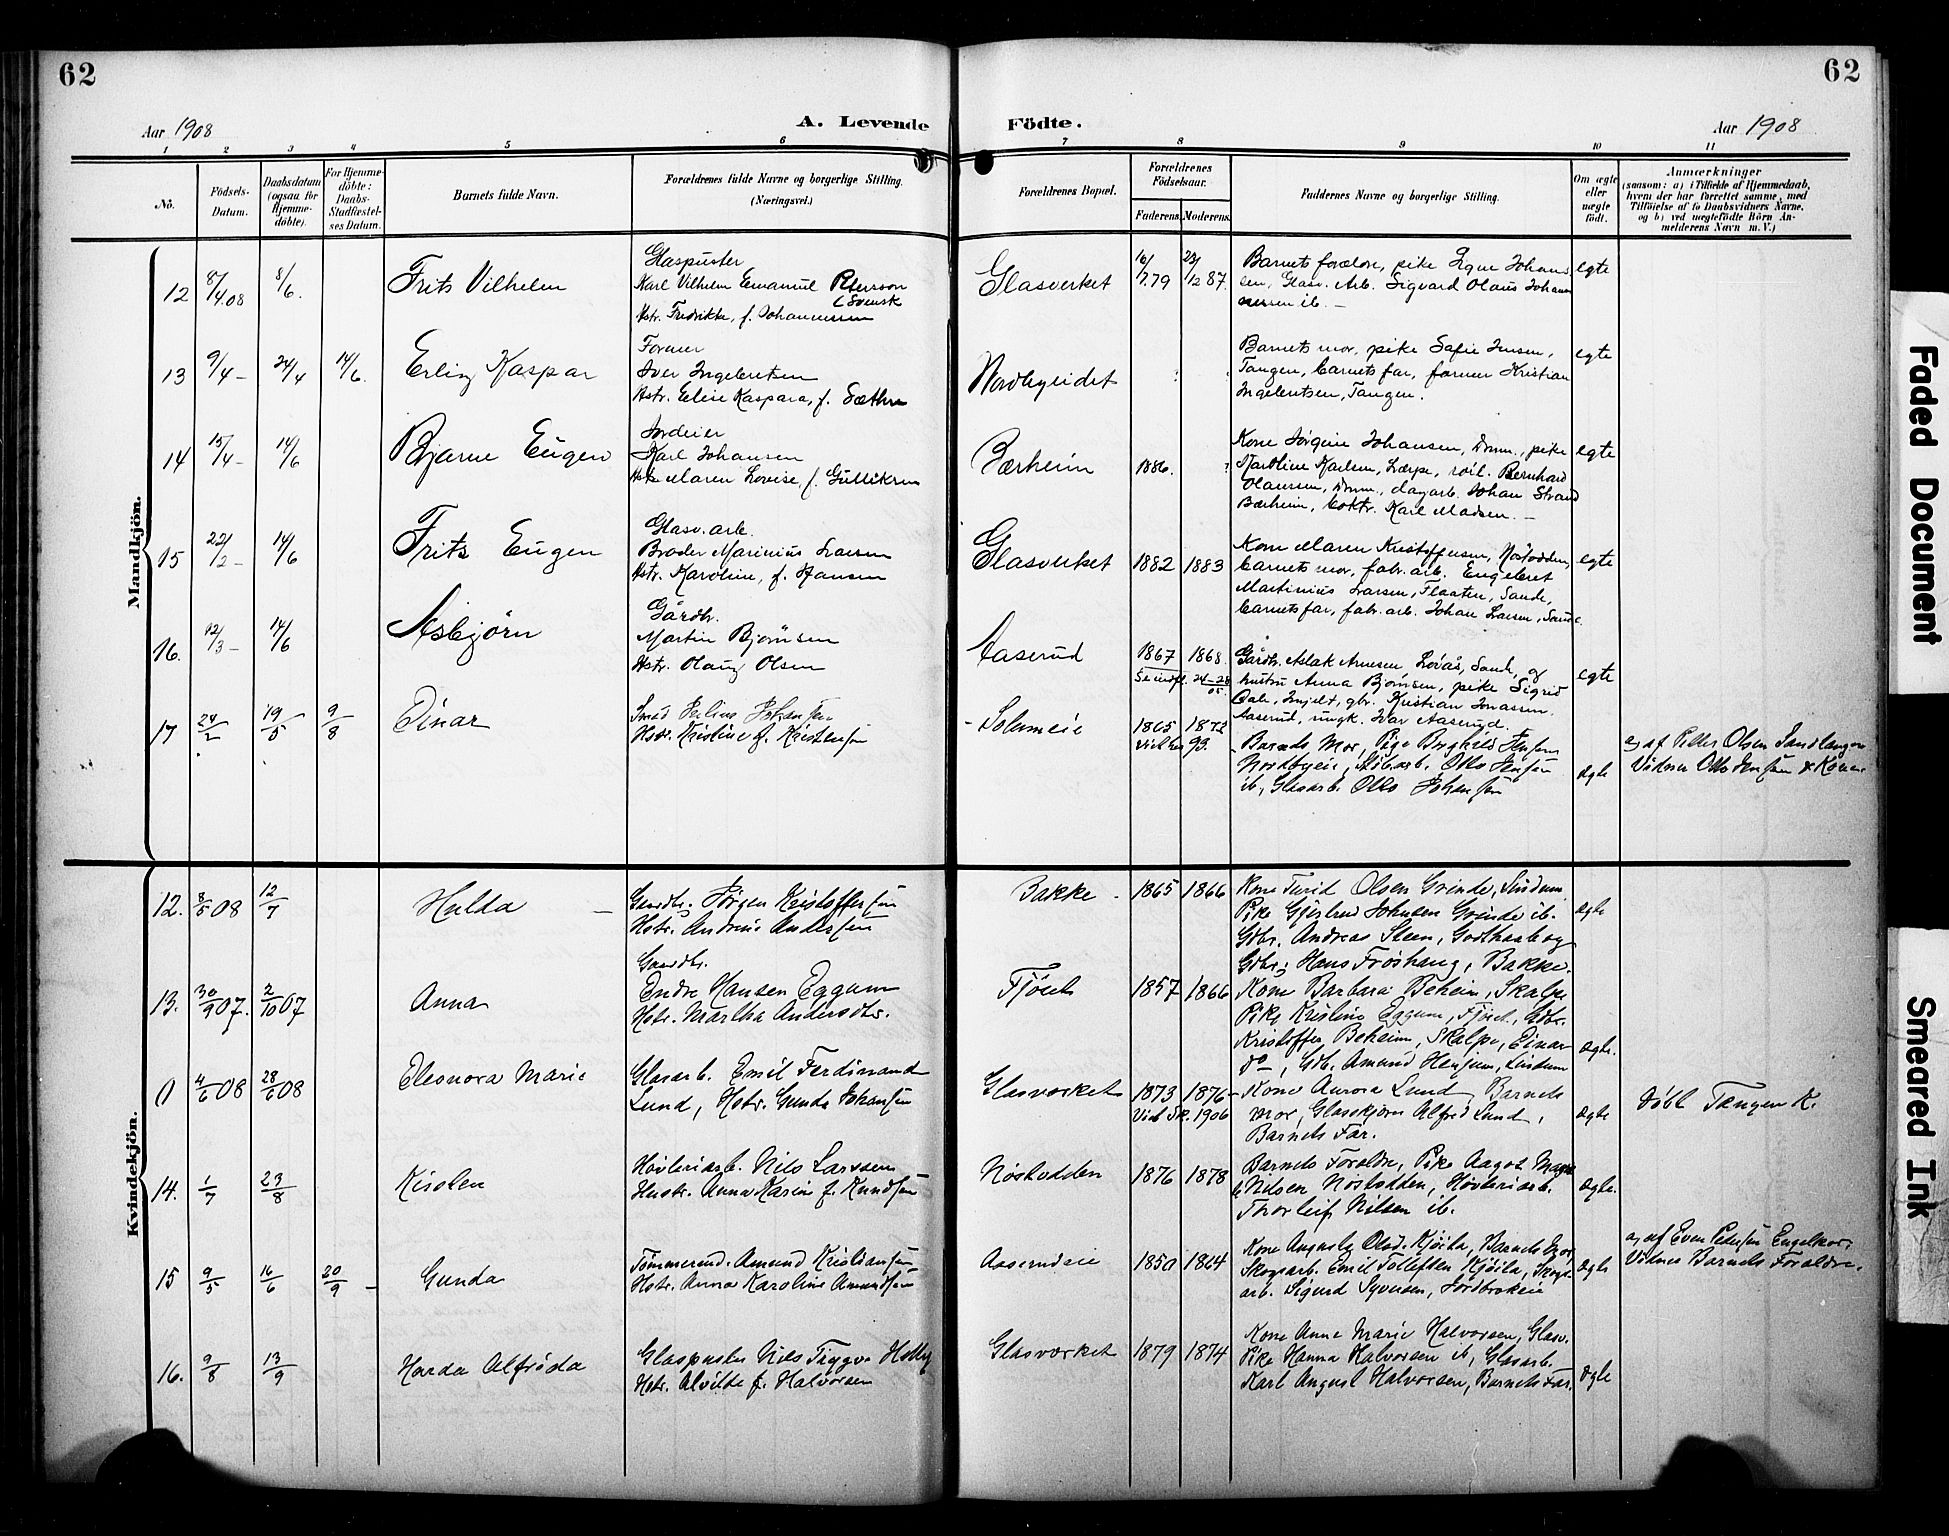 62
62
Aar 1908
A. Levende
Födte.
Aar 1908
1 2 3 4 5 6 7 8 9 10 11
No.
Födsels-Datum.
Daabsdatum (ogsaa for Hjemme-döbte).
For Hjemme-döbte: Daabs-Stadfæstel-ses Datum.
Barnets fulde Navn.
Forældrenes fulde Navne og borgerlige Stilling.
(Næringsvei.)
Forældrenes Bopæl.
Forældrenes Födselsaar.
Faderens.
Moderens.
Faddernes Navne og borgerlige Stilling.
Om ægte eller uægte födt.
Anmærkninger
(saasom: a) i Tilfælde af Hjemmedaab,
hvem der har forrettet samme, med
Tilföielse af to Daabsvidners Navne,
og b) ved uægtefödte Börn An-
melderens Navn m. V.)
Mandkjön.
12 8/4.08 8/6. Frits Vilhelm
Glaspuster
Karl Vilhelm Emanuel Petersson
(Svensk
Hstr. Fredrikke, f. Johannessen
Glasverket
16/7.79 23/12 87.
Barnets forældre, pike Johann
sen, Glasv. Arb. Sigvard Olaus Johan
nessen ib. —
egte
13 9/4 – 24/4 14/6. Erling Kaspar
Former
Iver Ingebretsen
Hstr. Elise Kaspara, f. Sæthre
Nordbyeidet
Barnets mor, pike Safie Jensen,
Tangen, barnets far, former Kristian
Ingebretsen, Tangen.
egte
14 15/4 – 14/6 Bjarne Eugen
Jordeier
Karl Johansen
Hstr. Maren Lovise, f. Gulliksen
Bærheim
1886. ?
Kone Jørgine Johansen, Dmm., pike
Karoline Karlsen, Lærpe, Bernhard
Olaussen, Dmm., dagarb. Johan Strand
Bærheim, boktr. Karl Madsen. —
egte
15 22/2 – 14/6 Frits Eugen
Glasv. arb.
Brøder Marinius Larsen
Hstr. Karoline, f. Hansen
Glasverket
1882 1883
Kone Maren Kristoffersen, Nøstodden,
barnets mor, fabr. arb. Engebret
Martinius Larsen, Flaaten, Sande,
barnets far, fabr. arb. Johan Larsen, Sande.
egte
16. 12/3 – 14/6 Asbjörn
Gårdbr.
Martin Bjørnsen
Hstr. Olaug Olsen
Aaserud
1867 1868.
24–28
05.
Gårdbr. Aslak Arnesen Løvås, Sande, og
hustru Anna Bjørnsen, pike Sigrid
Dale, gbr. Kristian Jonassen
Aaserud, ungk. Ivar Aaserud.
egte
17 24/2 19/5 9/8 Einar
Smed Johansen
Hstr. Kristine f. Kristensen
Solumeie
1865 1872
Viet 99.
Barnets Mor, Pige Borghild Jensen
Nordbyeie, Otto Jensen
ib, Glasarb. Otto Johansen
ægte
a) af Peder Olsen Sandtangen
Vidner Otto Jensen & Kone.
Kvindekjön.
12. 8/5 08 12/7 Hulda
Gaardbr. Jørgen Kristoffersen
Hstr. Andrine Andersen
Bakke
1865 1866
Kone Turid Olsen Grinde, Sindum
Pike Gjertrud Johnsen Grinde ib.
Gdbr. Andreas Steen, Godthaab og
Gdbr. Hans Frøshaug, Bakke.
ægte
13. 30/9 07. 2/10 07 Anna
Gaardbr.
Endre Hansen Eggum
Hstr. Martha Andersdtr.
Fjöset
1857 1866
Kone Barbara Beheim, Skalpe
Pike Kristine Eggum, Fjöset, Gdbr.
Kristoffer Beheim, Skalpe, Einar
do –, Gdb. Amund Hensum, Sindum
ægte.
0 4/6 08 28/6 08 Eleonora Marie
Glasarb. Emil Ferdinand
Lund, Hstr. Gunda Johansen
Glasværket
1873 1876
Viet 1906
Kone Aurora Lund, Barnets
mor, Glasskjærer Alfred Lund,
Barnets Far.
ægte
Döbt Tangen K.
14. 1/7 23/8 Kirsten
Høvleriarb. Nils Larssen
Hustr. Anna Karine f. Knudsen
Nöstodden
1876 1878
Barnets Forældre, Pike Aagot Magn
Nilsen Nöstodden, Høvleriarb.
Thorleif Nilsen ib.
ægte.
15 9/5 16/6 20/9 – Gunda
Tömmermd. Amund Kristiansen
Hstr. Anna Karoline Amundsen
Aaserudeie
1850 1864
Kone Olsd. Kjöila, Barnets mor,
Skogsarb. Emil Tollefsen Kjöila, Skogs
arb. Sigurd Syversen,
ægte
a) af Even Pedersen Engelkor,
Vidner Barnets Forældre.
16. 9/8 13/9 Harda Alfrida
Glaspuster Nils Trygve Holby
Hstr. Alvilde f. Halvorsen
Glasværket
1879 1874
Kone Anne Marie Halvorsen, Glasv.
Pike Hanna Halvorsen ib, Glasarb.
Karl August Halvorsen, Barnets Far.
ægte
Faded Document
Smeared Ink